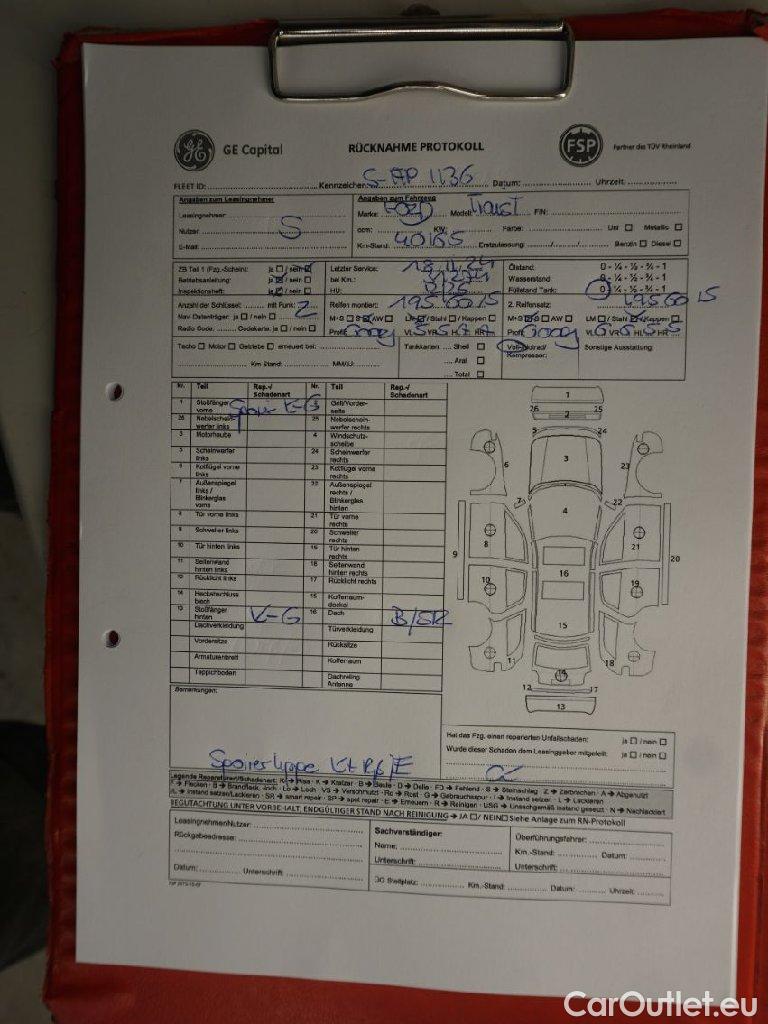 GE Capital RÜCKNAHME PROTOKOLL FSP Partner des TÜV Rheinland
FLEET ID: Kennzeichen: Datum: Uhrzeit:
Angaben zum Leasingnehmer Angaben zum Fahrzeug
Leasingnehmer: Marke: Ford Modell: FIN:
Nutzer: S ccm: KW: Farbe: Uni Metallic
E-Mail: Km-Stand: 40165 Erstzulassung: Benzin Diesel
ZB Teil 1 (Fzg.-Schein): ja / nein Letzter Service: Ölstand: 0 - ¼ - ½ - ¾ - 1
Betriebsanleitung: ja / nein bei Km.: Wasserstand 0 - ¼ - ½ - ¾ - 1
Inspektionsheft: ja / nein HU: Füllstand Tank: 0 - ¼ - ½ - ¾ - 1
Anzahl der Schlüssel: mit Funk: 2 Reifen montiert: 195 60 15 2. Reifensatz: 195 60 15
Nav Datenträger: ja / nein M+S S AW LM / Stahl / Kappen M+S S AW LM / Stahl / Kappen
Radio Code: Codekarte: ja / nein Profil VL 5 VR 5 HL HR Profil VL 6 VR 6 HL 5 HR 5
Tacho Motor Getriebe erneuert bei: Tankkarten: Shell Sonstige Ausstattung:
Aral Kompressor:
Km Stand: MM/JJ: Total
Nr. Teil Rep.-/ Schadenart Nr. Teil Rep.-/ Schadenart
1 Stoßfänger vorne K-G
26 Nebelscheinwerfer links 25 Nebelscheinwerfer rechts
3 Motorhaube 4 Windschutzscheibe
Scheinwerfer links 24 Scheinwerfer rechts
Kotflügel vorne links 23 Kotflügel vorne rechts
7 Außenspiegel links / Blinkerglas vorne 22 Außenspiegel rechts / Blinkerglas hinten
Tür vorne links 21 Tür vorne rechts
Schweller links 20 Schweller rechts
10 Tür hinten links Tür hinten rechts
11 Seitenwand hinten links 18 Seitenwand hinten rechts
Rücklicht links 17 Rücklicht rechts
14 Heckabschluss blech 15 Kofferraumdeckel
13 Stoßfänger hinten K-G 16 Dach B/SR
Dachverkleidung Türverkleidung
Vordersitze Rücksitze
Armaturenbrett Kofferraum
Teppichboden Dachreling Antenne
1
26 2 25
5 24
6 3 23
7 22
4
8 21
9 20
10 16 19
15
11 18
14
12 17
13
Bemerkungen:
Hat das Fzg. einen reparierten Unfallschaden: ja / nein
Wurde dieser Schaden dem Leasinggeber mitgeteilt: ja / nein
Legende Reparaturen/Schadenart: K → Kratzer · B → Beule · D → Delle · FD → Fehlend · S → Steinschlag · Z → Zerbrochen · A → Abgenutzt
F → Flecken · Lo → Loch · VS → Verschmutzt · Ro → Rost · G → Gebrauchsspur · I → Instand setzen · L → Lackieren
I/L → Instand setzen/Lackieren · SR → smart repair · SP → spot repair · E → Erneuern · R → Reinigen · USG → Unsachgemäß instand gesetzt · N → Nachlackiert
BEGUTACHTUNG UNTER VORBEHALT, ENDGÜLTIGER STAND NACH REINIGUNG → JA / NEIN Siehe Anlage zum RN-Protokoll
Leasingnehmer/Nutzer: Sachverständiger: Überführungsfahrer:
Rückgabeadresse: Name: Km.-Stand: Datum:
Unterschrift: Unterschrift:
Datum: Unterschrift: Stellplatz: Km.-Stand: Datum: Uhrzeit:
CarOutlet.eu